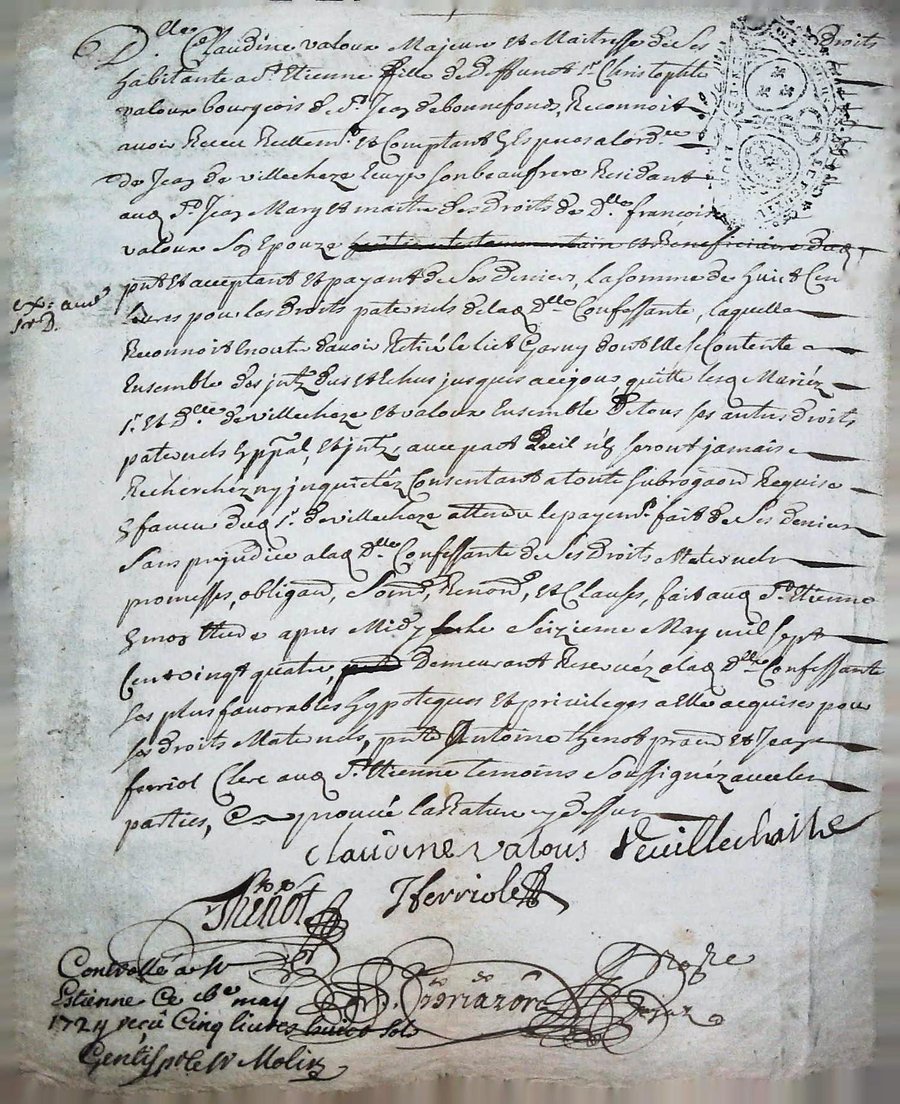 D.lle Claudine valoux Majeure et Maitresse de Ses Droits
habitante a St. Etienne fille de deffunct sr. Christophle
valoux bourgeois de St. Jean de bonnefond, Reconnoit
avoir Receu Reellemt. et Comptant
de Jean de villecheze Ecuyer son beaufrere Residant
aud St. Jean Mary et maitre des Droits de d.lle francoise
valoux Son Epouze et Beneficiaire dud
pnt et acceptant et payant de Ses deniers, la somme de huit Cen
livres pour les Droits paternels de lad d.lle Confessante, laquelle
Reconnoit En outre davoir Retiré le lict Garny dont Elle se Contente
Ensemble des intz dus et Echus jusques a ce jour, quitte lesd Mariéz
sr. et d.lle de villecheze et valoux Ensemble de tous ses autres droits
paternels ppal, et intz, avec pact quil nen seront jamais
Recherchéz ny inquietéz Consentant a toute Subrogaon Requise
faveur dud sr. de villecheze attendu le payemt. fait de Ses deniers
Sans prejudice a lad d.lle Confessante de Ses Droits Maternels
promesses, obligaon, Soumon, Renonon, et Clauses, fait aud St. Etienne
mon Etude apres Midy le Seizieme May mil Sept
Cent vingt quatre, demeurant Reservéz a lad d.lle Confessante
les plus favorables hypoteques et privileges a Elle acquises pour
Ses droits Maternels, pnts Antoine thenot praen et Jean
ferriol Clerc aud St. Etienne temoins Soussignéz avec les
parties, aprouvée la Rature cy dessus
Claudine valous Deuillechaise
Thenot JFerriol
Controllé a St
Estienne Ce may
1724 reçu Cinq livres huict Sols
Gentis pr le sr Molin